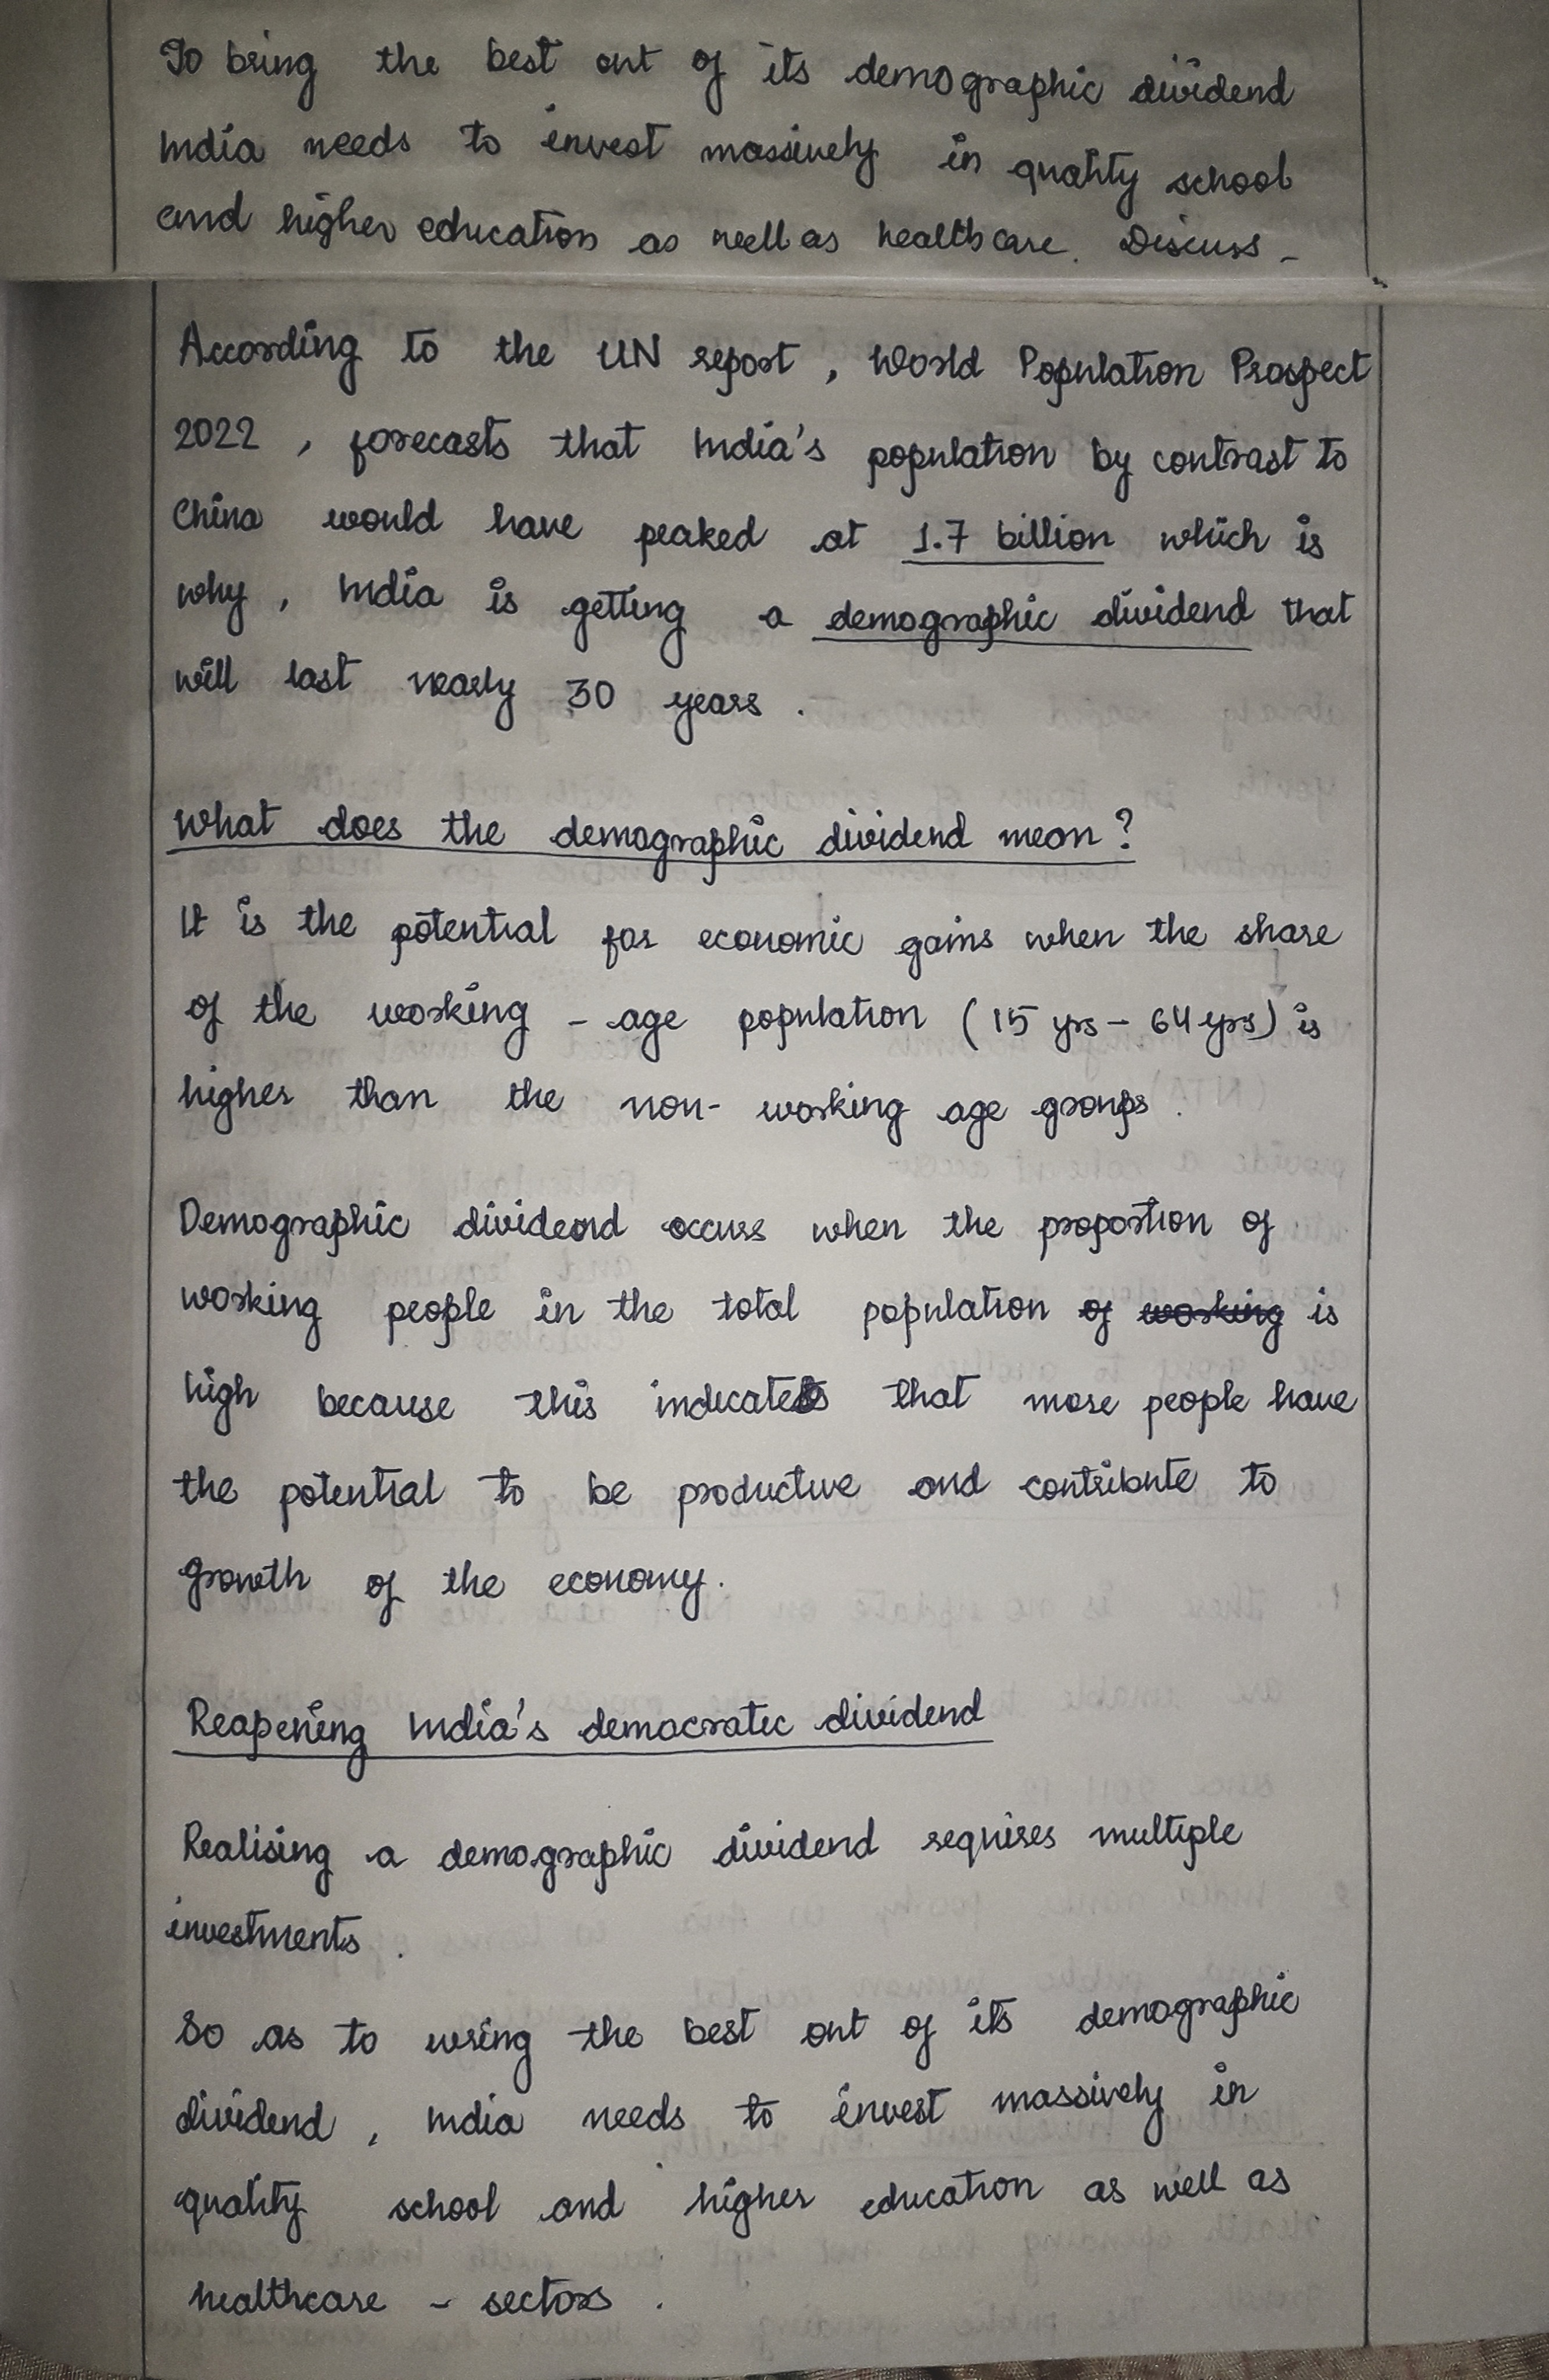 To bring the best out of its demographic dividend
India needs to invest massively in quality school
and higher education as well as healthcare. Discuss -
According to the UN report, World Population Prospect
2022, forecasts that India's population by contrast to
China would have peaked at 1.7 billion which is
why, India is getting a demographic dividend that
will last nearly 30 years.
What does the demographic dividend mean?
It is the potential for economic gains when the share
of the working - age population (15 yrs - 64 yrs) is
higher than the non- working age groups.
Demographic dividend occurs when the proportion of
working people in the total population of working is
high because this indicates that more people have
the potential to be productive and contribute to
growth of the economy.
Reapening India's democratic dividend
Realising a demographic dividend requires multiple
investments.
So as to wring the best out of its demographic
dividend, India needs to invest massively in
quality school and higher education as well as
healthcare - sectors.